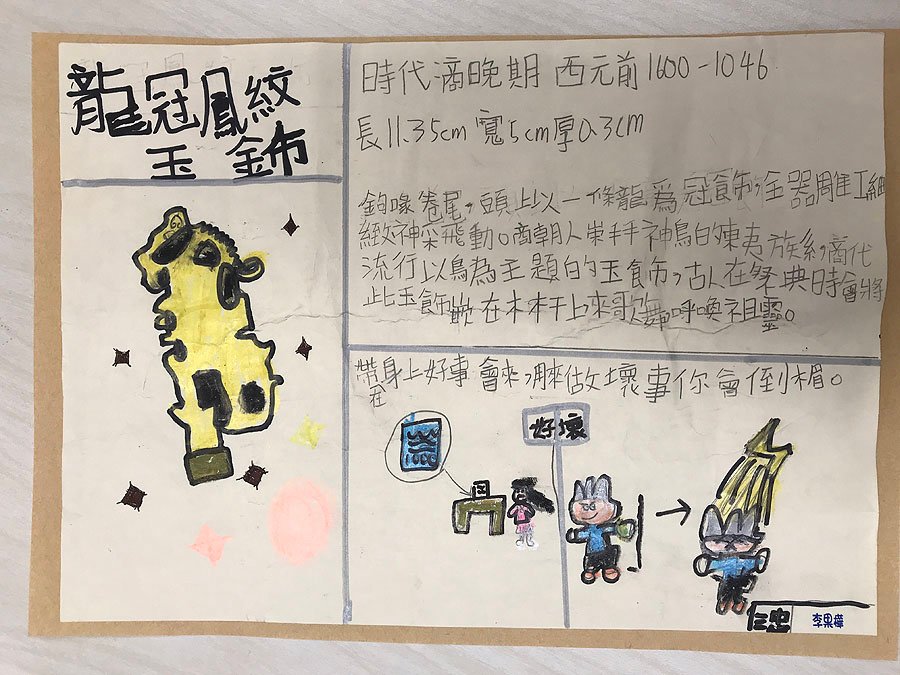 龍冠鳳紋
玉飾
時代商晚期 西元前1600-1046
長11.35cm寬5cm厚0.3cm
鈎喙卷尾,頭上以一條龍為冠飾,全器雕工細
緻神采飛動。商朝人崇拜神鳥的東夷族系,商代
流行以鳥為主題的玉飾,古人在祭典時會將
此玉飾嵌在木杆上來歌舞呼喚祖靈。
帶在身上好事會來,用來做壞事你會倒楣。
好壞
仁忠 李果樺